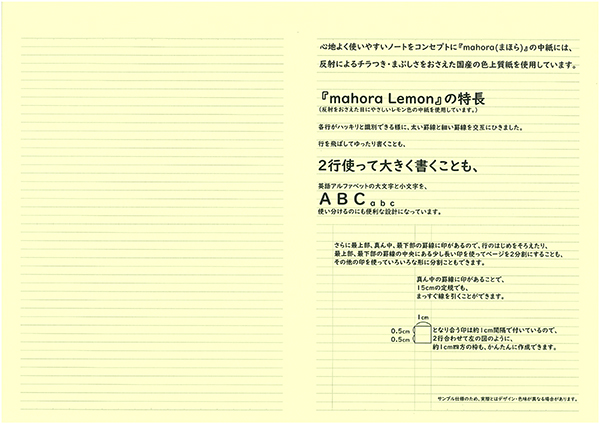 心地よく使いやすいノートをコンセプトに『mahora(まほら)』の中紙には、
反射によるチラつき・まぶしさをおさえた国産の色上質紙を使用しています。
『mahora Lemon』の特長
(反射をおさえた目にやさしいレモン色の中紙を使用しています。)
各行がハッキリと識別できる様に、太い罫線と細い罫線を交互にひきました。
行を飛ばしてゆったり書くことも、
2行使って大きく書くことも、
英語アルファベットの大文字と小文字を、
ABC abc
使い分けるのにも便利な設計になっています。
さらに最上部、真ん中、最下部の罫線に印があるので、行のはじめをそろえたり、
最上部、最下部の罫線の中央にある少し長い印を使ってページを2分割にすることも、
その他の印を使っていろいろな形に分割こともできます。
真ん中の罫線に印があることで、
15cmの定規でも、
まっすぐ線を引くことができます。
1cm
0.5cm
0.5cm
となり合う印は約1cm間隔で付いているので、
2行合わせて左の図のように、
約1cm四方の枠も、かんたんに作成できます。
サンプル仕様のため、実際とはデザイン・色味が異なる場合があります。